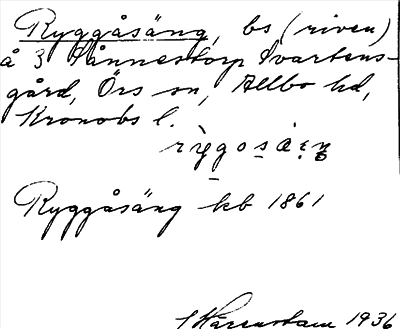 Ryggåsäng, bs (riven)
å 3 Pånnestorp Svartens-
gård, Örs sn, Allbo hd,
Kronobs l.
Ryggåsäng kb 1861
1936